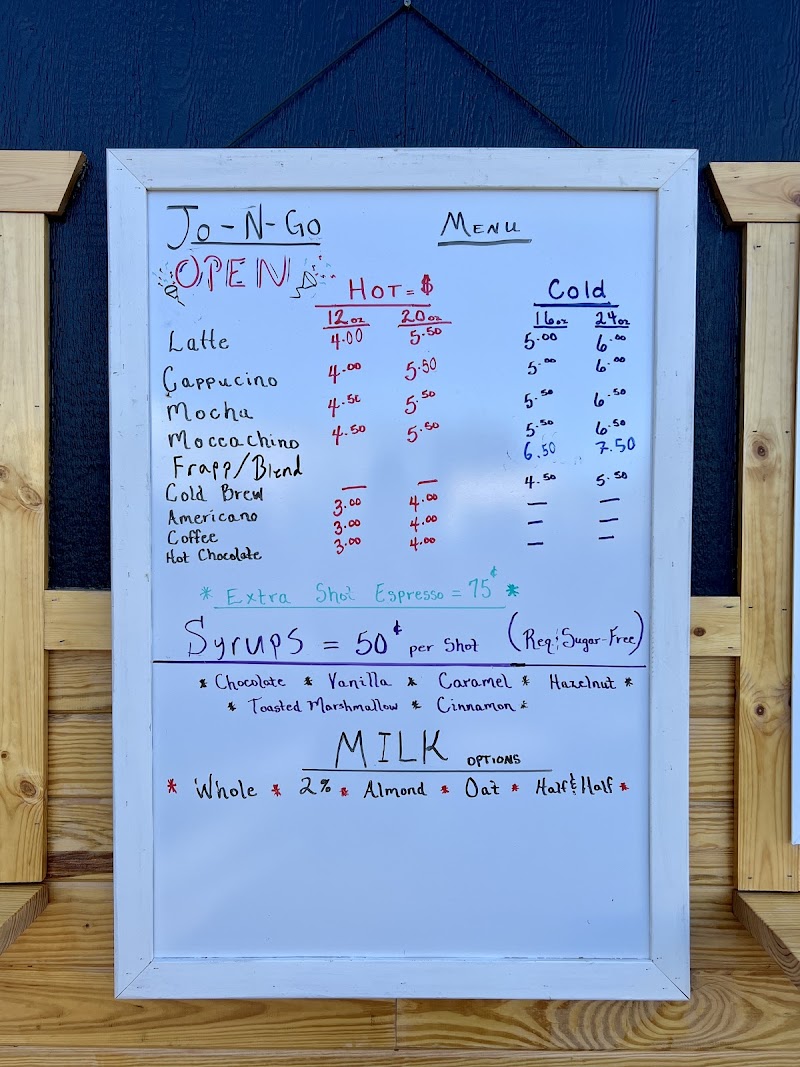 Jo-N-Go Menu
OPEN
Hot = $ Cold
12oz 20oz 16oz 24oz
Latte 4.00 5.50 5.00 6.00
Cappucino 4.00 5.50 5.00 6.00
Mocha 4.50 5.50 5.50 6.50
Moccachino 4.50 5.50 5.50 6.50
Frapp/Blend 6.50 7.50
Cold Brew — — 4.50 5.50
Americano 3.00 4.00 — —
Coffee 3.00 4.00 — —
Hot Chocolate 3.00 4.00 — —
* Extra Shot Espresso = 75¢ *
Syrups = 50¢ per shot (Reg & Sugar-Free)
* Chocolate * Vanilla * Caramel * Hazelnut *
* Toasted Marshmallow * Cinnamon *
MILK OPTIONS
* Whole * 2% * Almond * Oat * Half & Half *